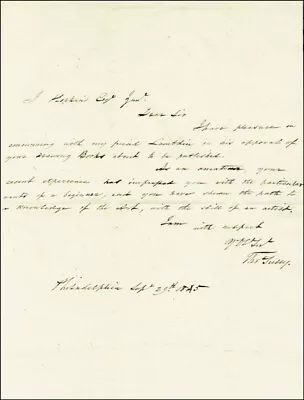 J Hopkin Esqr. Junr.
Dear Sir
I have pleasure in
concurring with my friend Lambdin in an approval of
your drawing Books about to be published.
As an amateur your
recent experience has impressed you with the particular
wants of a beginner, and you have shown the path to
a Knowledge of the Art, with the skill of an artist.
I am
with respect
Yr. Ob. Sert.
Thos Sully.
Philadelphia Sept 29th 1845